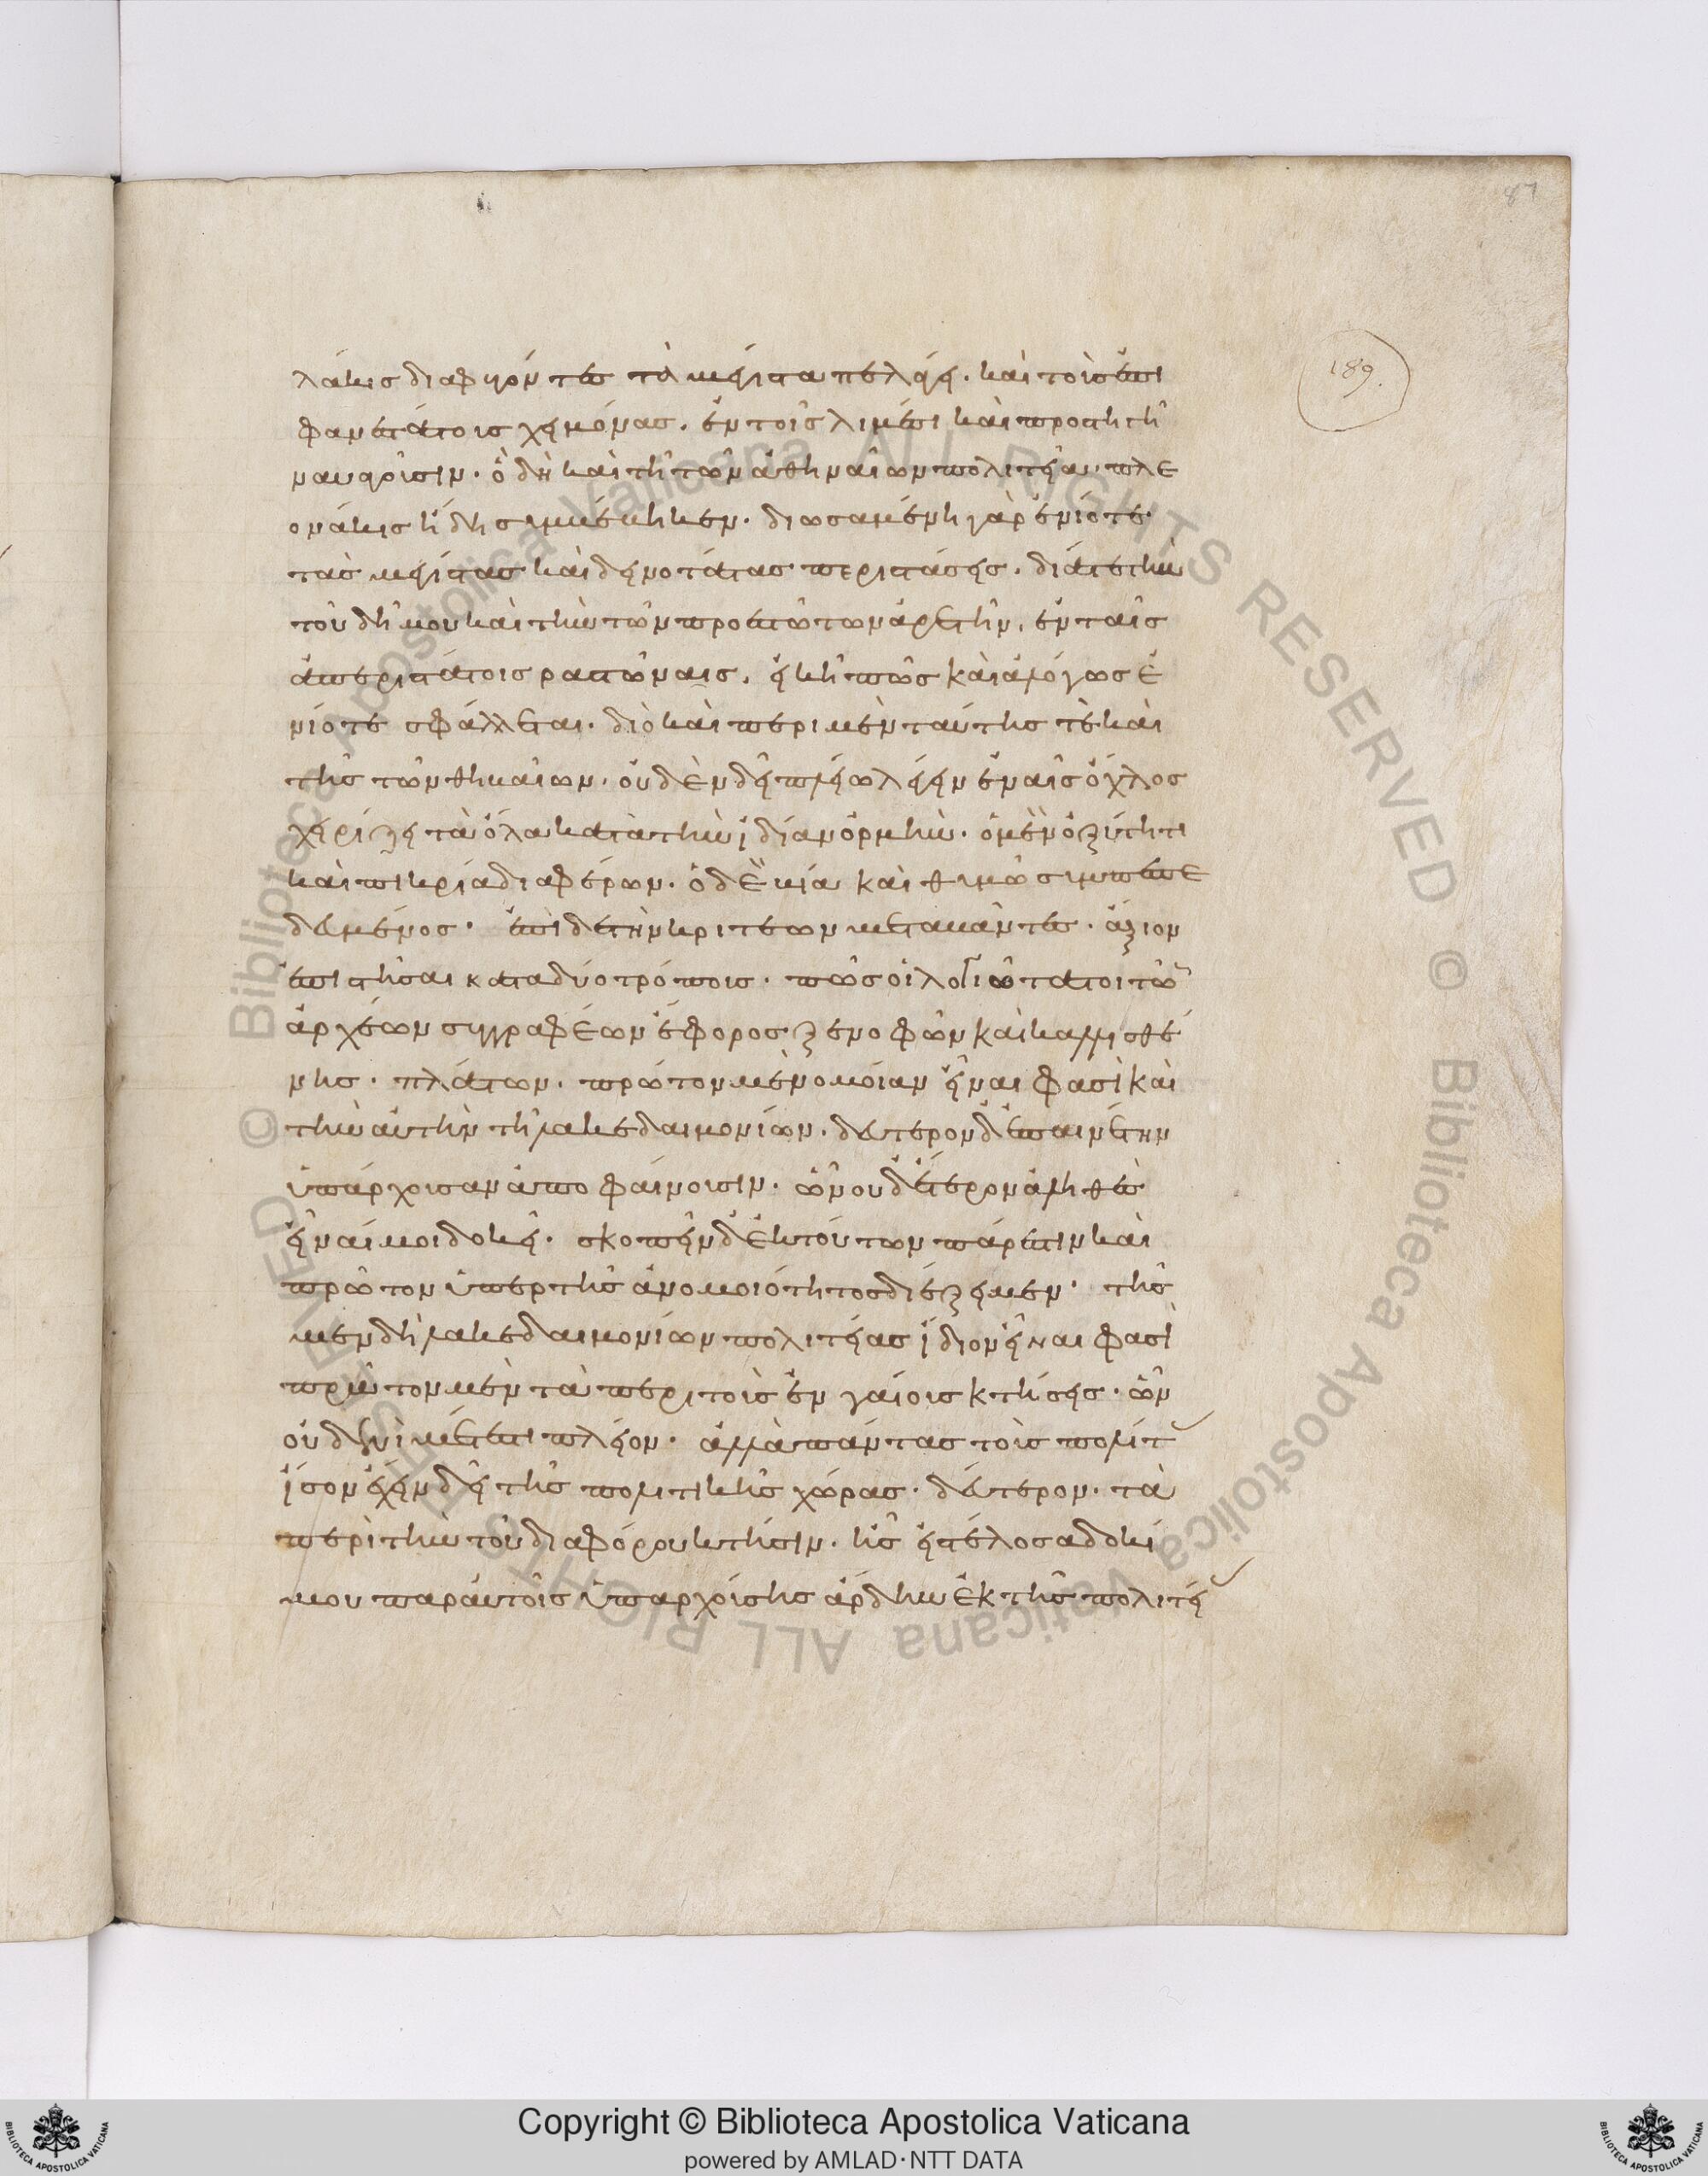 87
189.
λάκις διαφυγόντες τὰ μέγιστα πελάγη. καὶ τοὺς ἐπι
φανεστάτους χειμῶνας. ἐν τοῖς λιμέσι καὶ πρὸς τῆι γῆι
ναυαγοῦσιν. ὃ δὴ καὶ τῆι τῶν ἀθηναίων πολιτείαι πλε
ονάκις ἤδη συμβέβηκεν. διωσαμένη γὰρ ἐνίοτε
τὰς μεγίστας καὶ δεινοτάτας περιστάσεις. διά τε τὴν
τοῦ δήμου καὶ τὴν τῶν προεστώτων ἀρετὴν, ἐν ταῖς
ἀπεριστάτοις ραστώναις, εἰκῆ πως καὶ ἀλόγως ἐ
νίοτε σφάλλεται. διὸ καὶ περὶ μὲν ταύτης τὲ καὶ
τῆς τῶν θηβαίων. οὐδὲν δεῖ πλείω λέγειν ἐν αἷς ὄχλος
χειρίζει τὰ ὅλα κατὰ τὴν ἰδίαν ὁρμὴν. ὁ μὲν ὀξύτητι
καὶ πικρίᾳ διαφέρων. ὁ δὲ βίᾳ καὶ θυμῷ συμπεπαι
δευμένος. ἐπὶ δὲ τὴν κρητέων μεταβάντες. ἄξιον
ἐπιστῆσαι κατὰ δύο τρόπους. πῶς οἱ λογιώτατοι τῶν
ἀρχαίων συγγραφέων ἔφορος ξενοφῶν καὶ καλλισθέ
νης. πλάτων. πρῶτον μὲν ὁμοίαν εἶναι φασὶ καὶ
τὴν αὐτὴν τῆι λακεδαιμονίων. δεύτερον δ' ἐπαινετὴν
ὑπάρχουσαν ἀποφαίνουσιν. ὧν οὐδέτερον ἀληθὲς
εἶναί μοι δοκεῖ. σκοπεῖν δ' ἐκ τούτων πάρεστιν καὶ
πρῶτον ὑπὲρ τῆς ἀνομοιότητος διέξιμεν. τῆς
μὲν δὴ λακεδαιμονίων πολιτείας ἴδιον εἶναι φασὶ
πρῶτον μὲν τὰ περὶ τὰς ἐγγαίους κτήσεις. ὧν
οὐδενὶ μέτεστι πλεῖον. ἀλλὰ πάντας τοὺς πολίτ
ἴσον ἔχειν δεῖ τῆς πολιτικῆς χώρας. δεύτερον. τὰ
περὶ τὴν τοῦ διαφόρου κτῆσιν. ἧς εἰς τέλος ἀδοκί
μου παρ' αὐτοῖς ὑπαρχούσης ἄρδην ἐκ τῆς πολιτεί
Copyright © Biblioteca Apostolica Vaticana
powered by AMLAD·NTT DATA